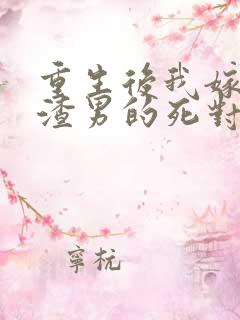 重生後我嫁
渣男的死對
寧杬